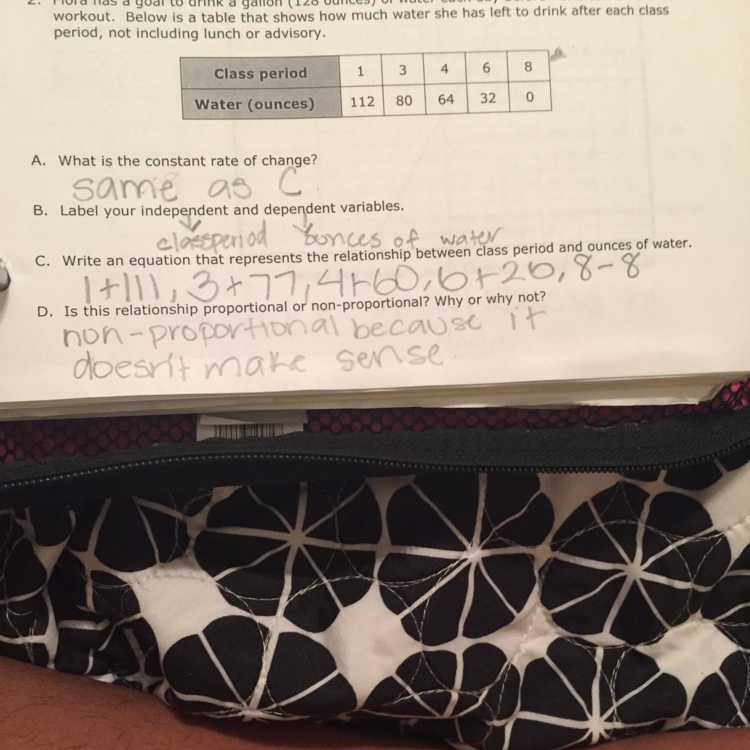 2. Flora has a goal to drink a gallon (128 ounces) of water each day
workout. Below is a table that shows how much water she has left to drink after each class
period, not including lunch or advisory.
Class period 1 3 4 6 8
Water (ounces) 112 80 64 32 0
A. What is the constant rate of change?
same as C
B. Label your independent and dependent variables.
classperiod ounces of water
C. Write an equation that represents the relationship between class period and ounces of water.
1+111, 3+77, 4+60, 6+26, 8-8
D. Is this relationship proportional or non-proportional? Why or why not?
non-proportional because it
doesn't make sense.